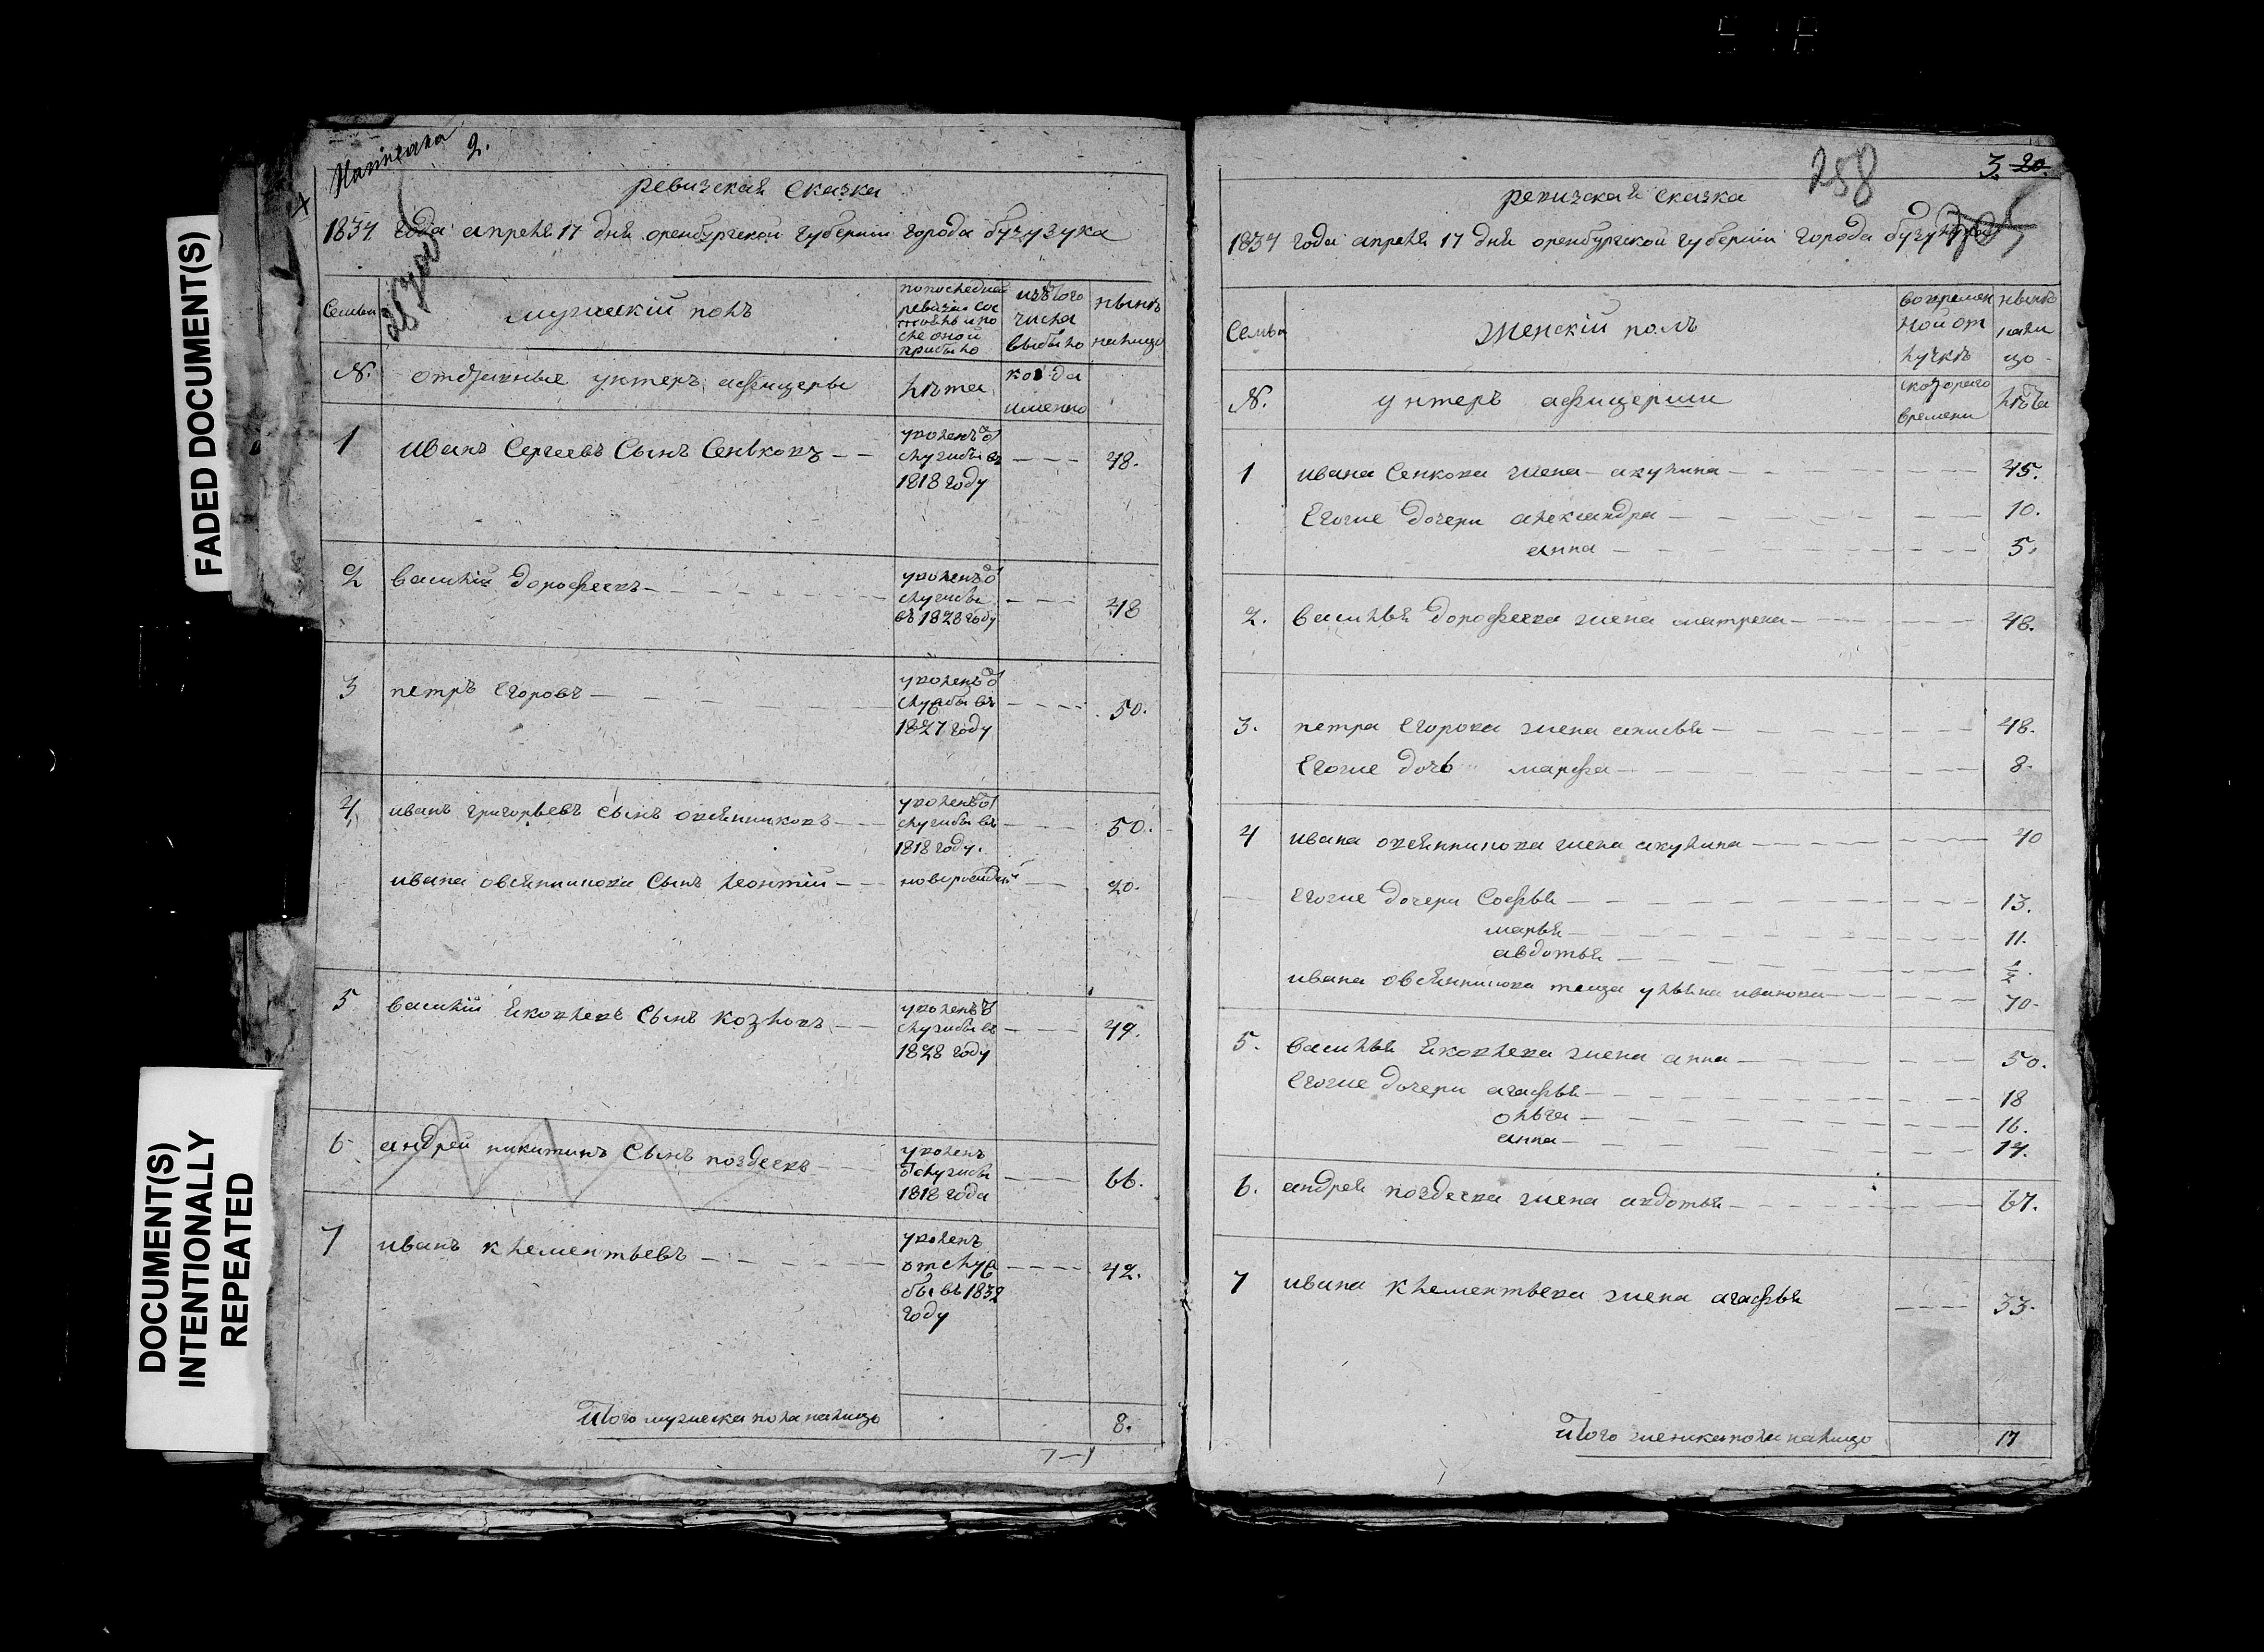 FADED DOCUMENT(S)
DOCUMENT(S)
INTENTIONALLY
REPEATED
2.
ревизская сказка
1834 года апреля 17 дня оренбургской губернии города бузулука
Семьи
мужеский полъ
по последней ревизии состоялъ и после оной прибыло
изъ того числа выбыло
нынѣ налицо
№.
отставные унтеръ афицеры
лѣта
когда именно
1 иванъ Сергеевъ Сынъ Сеньковъ — — уволенъ от службы въ 1818 году — — — 48.
2 василий дорофеевъ — уволенъ от службы въ 1828 году — — — 48
3 петръ Егоровъ — уволенъ от службы въ 1827 году — — — 50.
4 иванъ григорьевъ сынъ овсянниковъ — — уволенъ от службы въ 1818 году. — — — 50.
ивана овсянникова Сынъ леонтий — — новорожденый — — 20.
5 василий яковлевъ Сынъ козловъ — — уволенъ от службы въ 1828 году — — — 49.
6 андрей никитинъ Сынъ поздеевъ — уволенъ от службы 1818 года — — — 66.
7 иванъ клементьевъ — уволенъ от службы въ 1832 году — — — 42.
Итого мужеска пола налицо 8.
7—1
258
3. 20.
ревизская сказка
1834 года апреля 17 дня оренбургской губернии города
Семьи
Женский полъ
во времянной отлучкѣ
нынѣ налицо
№.
унтеръ афицерши
с котораго времени
лѣта
1 ивана Сенкова жена акулина — 45.
Егоже дочери александра — 10.
анна — 5.
2. василья дорофеева жена матрена — 48.
3. петра Егорова жена анисья — 48.
Егоже дочь марфа — 8.
4 ивана овсянникова жена акулина — 40
Егоже дочери Софья — 13.
марья — 11.
авдотья — ½.
ивана овсянникова теща ульяна иванова — 70.
5. василья яковлева жена анна — 50.
Егоже дочери агафья — 18
ольга — 16.
анна — 14.
6. андрея поздеева жена авдотья — 67.
7 ивана клементьева жена агафья — — — 33.
Итого женска пола налицо 17